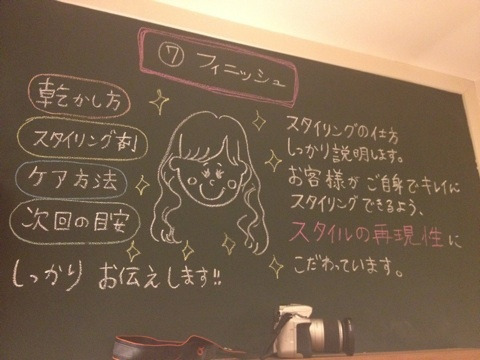 ⑦ フィニッシュ
乾かし方
スタイリング剤
ケア方法
次回の目安
しっかり お伝えします!!
スタイリングの仕方
しっかり説明します。
お客様がご自身でキレイに
スタイリングできるよう、
スタイルの再現性に
こだわっています。